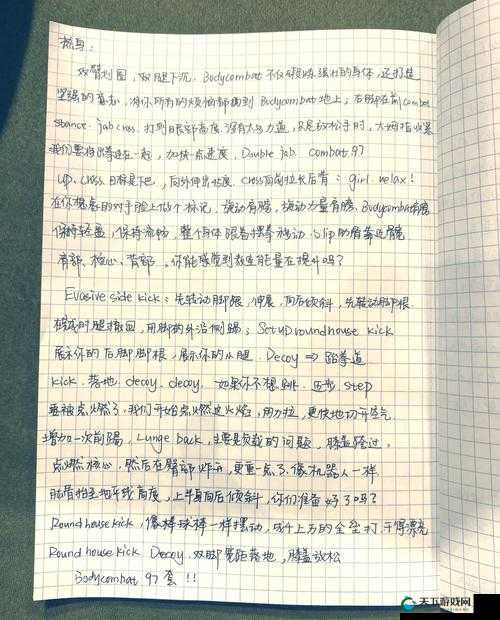 热身:
双臂划圈,双腿下沉. Bodycombat 不仅锻炼强壮的身体,还打造
坚强的意志,将你所有的烦恼都揍到 Bodycombat 地上;右脚在前 combat
stance. jab cross. 打到眼部高度,没有太多力道,只是放松手时,大拇指收紧
我们要将出拳连在一起,加快一点速度. Double jab. combat 97
up. cross 目标是下巴,向外伸出长度. cross 向前拉长后背: girl. relax!
在你想象的对手脸上做个标记. 旋动有髋, 旋动力量有髋. Bodycombat
保持轻盈,保持流畅,整个身体跟着摆拳移动. slip 的肩靠近髋
肩部、核心、背部. 你能感觉到教连能量在提升吗?
Evasive side kick: 先转动脚跟,伸展,向后倾斜,先转动脚跟
用脚的外沿侧踢; Set up roundhouse kick
展示你的后脚脚根,展示你的小腿. Decoy ⇒ 跆拳道
kick. 落地. decoy. decoy. 如果你不想跳. 迈步. step
要被点燃了. 我们开始点燃这火焰,用力拉,更快地切开空气.
增加一次前踢, Lunge back, 主要是负载的问题,膝盖绕过.
点燃核心,然后在臀部炸开,更重一点了. 像机器人一样
肘肩抬至地平线高度,上半身向后倾斜,你们准备好了吗?
Roundhouse kick, 像棒球棒一样摆动,成千上万的全垒打. 干得漂亮
Roundhouse kick. Decoy. 双脚宽距落地,膝盖放松
Bodycombat 97 套!!
天下游戏网